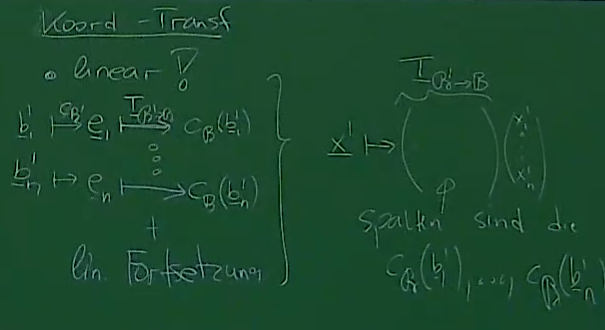 Koord-Transf
• linear!
b₁' ↦ e₁ ↦ c_B(b₁')
c_B' T_B'→B
⋮
bₙ' ↦ eₙ ↦ c_B(bₙ')
+
lin. Fortsetzung
T_B'→B
x' ↦ ( ) (x₁' ⋮ xₙ')
Spalten sind die
c_B(b₁'), ..., c_B(bₙ')